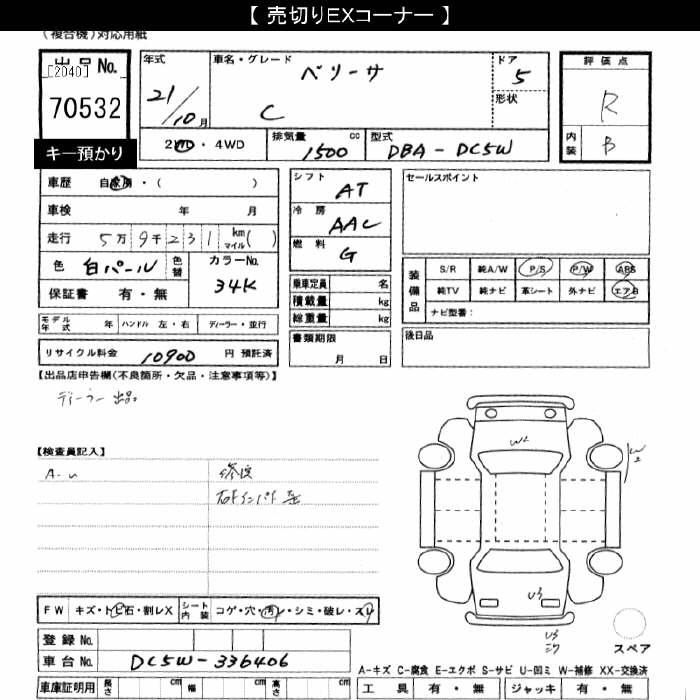 【 売切りEXコーナー 】
(複合機)対応用紙
出品No. [2040] 70532
キー預かり
年式 21/10月
車名・グレード ベリーサ C
ドア 5
形状
評価点 R
内装 B
2WD・4WD
排気量 1500 cc
型式 DBA-DC5W
車歴 自家用・( )
車検 年 月
走行 5万9千231 km マイル( )
色 白パール 色替
カラーNo. 34K
保証書 有・無
シフト AT
冷房 AAC
燃料 G
乗車定員 名
積載量 kg
総重量 kg
書類期限 月 日
セールスポイント
装備品
S/R 純A/W P/S P/W ABS
純TV 純ナビ 革シート 外ナビ エアB
ナビ型番:
後日品
モデル年式 年 ハンドル 左・右 ディーラー・並行
リサイクル料金 10900 円 預託済
【出品店申告欄(不良箇所・欠品・注意事項等)】
ディーラー出品
【検査員記入】
A-u
修復
W2
W2
U3
U3
FW キズ・トビ石・割レX シート内装 コゲ・穴・汚レ・シミ・破レ・スレ
登録No.
車台No. DC5W-336406
車庫証明用 長さ cm 幅 cm 高さ cm
スペア
A-キズ C-腐食 E-エクボ S-サビ U-凹ミ W-補修 XX-交換済
工具 有・無 ジャッキ 有・無